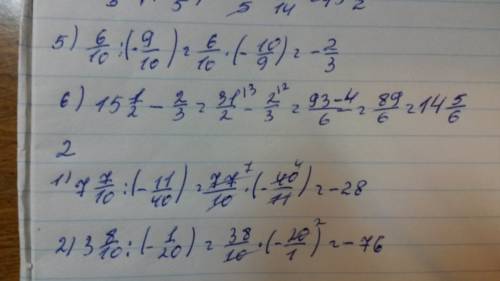 5) 6/10 : (-9/10) = 6/10 · (-10/9) = -2/3
6) 15 1/2 - 2/3 = 31/2 ¹³ - 2/3 ¹² = 93-4/6 = 89/6 = 14 5/6
2
1) 7 7/10 : (-11/40) = 77/10 ⁷ · (-40/11) ⁴ = -28
2) 3 8/10 : (-1/20) = 38/10 · (-20/1) ² = -76